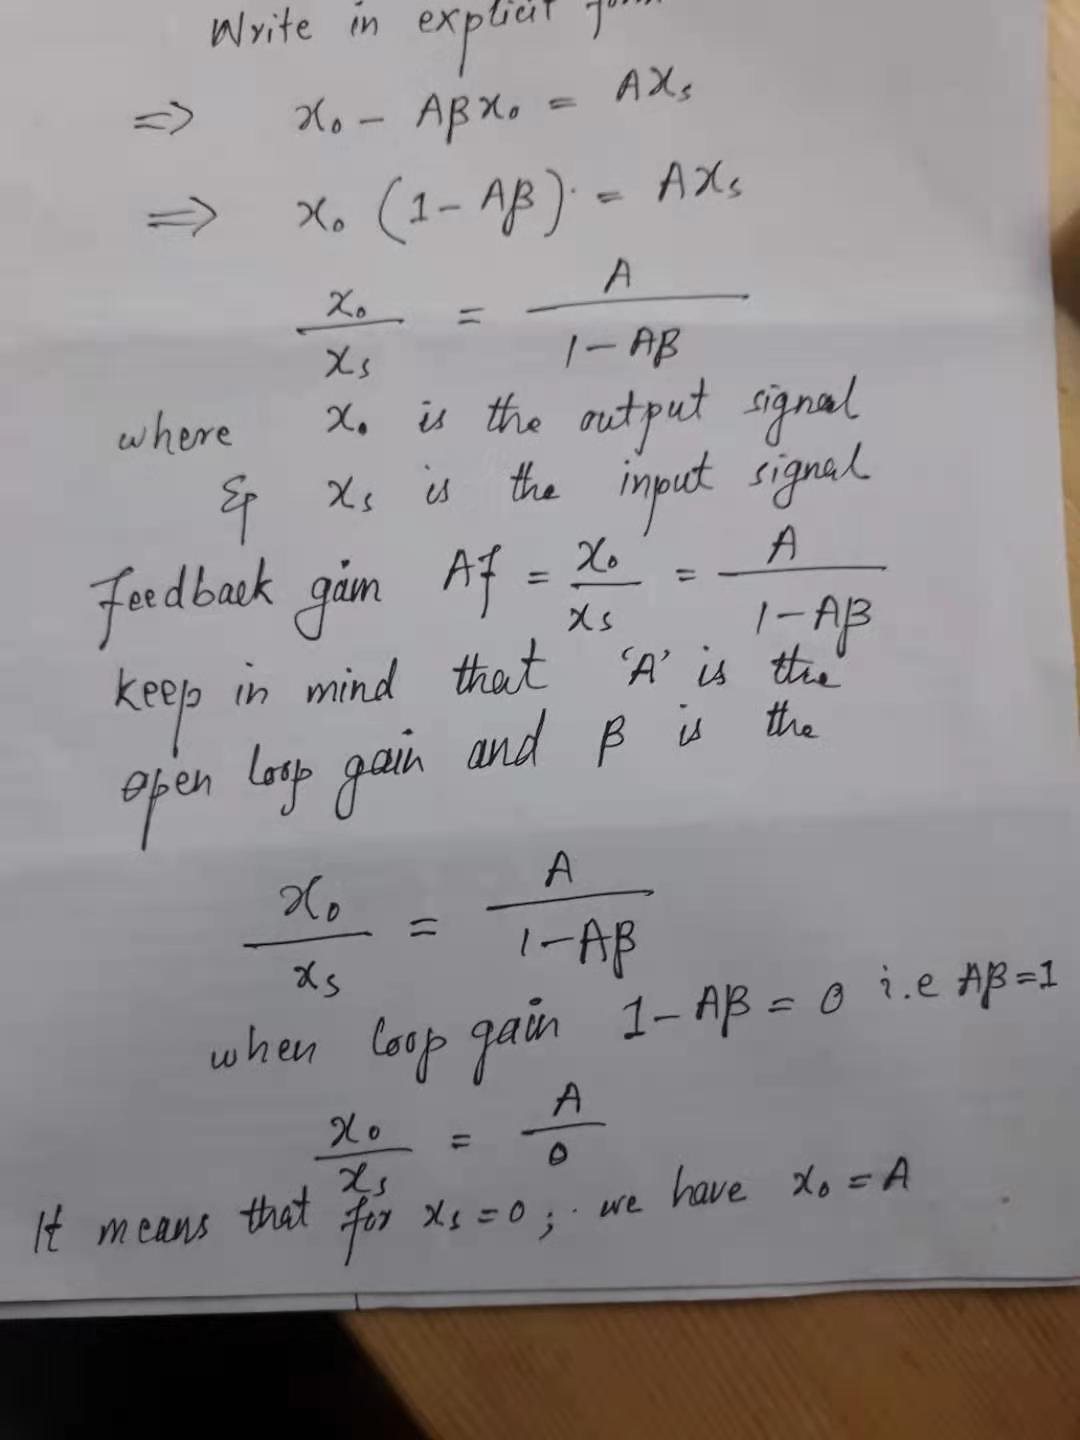 Write in explicit form
⇒ x₀ - Aβx₀ = AXₛ
⇒ x₀ (1 - Aβ) = AXₛ
x₀/xₛ = A/(1 - Aβ)
where x₀ is the output signal
& xₛ is the input signal
feedback gain Af = x₀/xₛ = A/(1 - Aβ)
keep in mind that 'A' is the
open loop gain and β is the
x₀/xₛ = A/(1 - Aβ)
when loop gain 1 - Aβ = 0 i.e Aβ=1
x₀/xₛ = A/0
It means that for xₛ = 0; we have x₀ = A